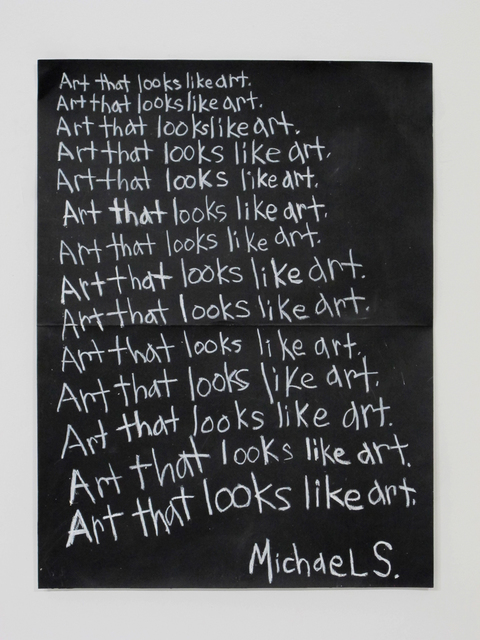 Art that looks like art.
Art that looks like art.
Art that looks like art.
Art that looks like art.
Art that looks like art.
Art that looks like art.
Art that looks like art.
Art that looks like art.
Art that looks like art.
Art that looks like art.
Art that looks like art.
Art that looks like art.
Art that looks like art.
Art that looks like art.
MichaeL S.